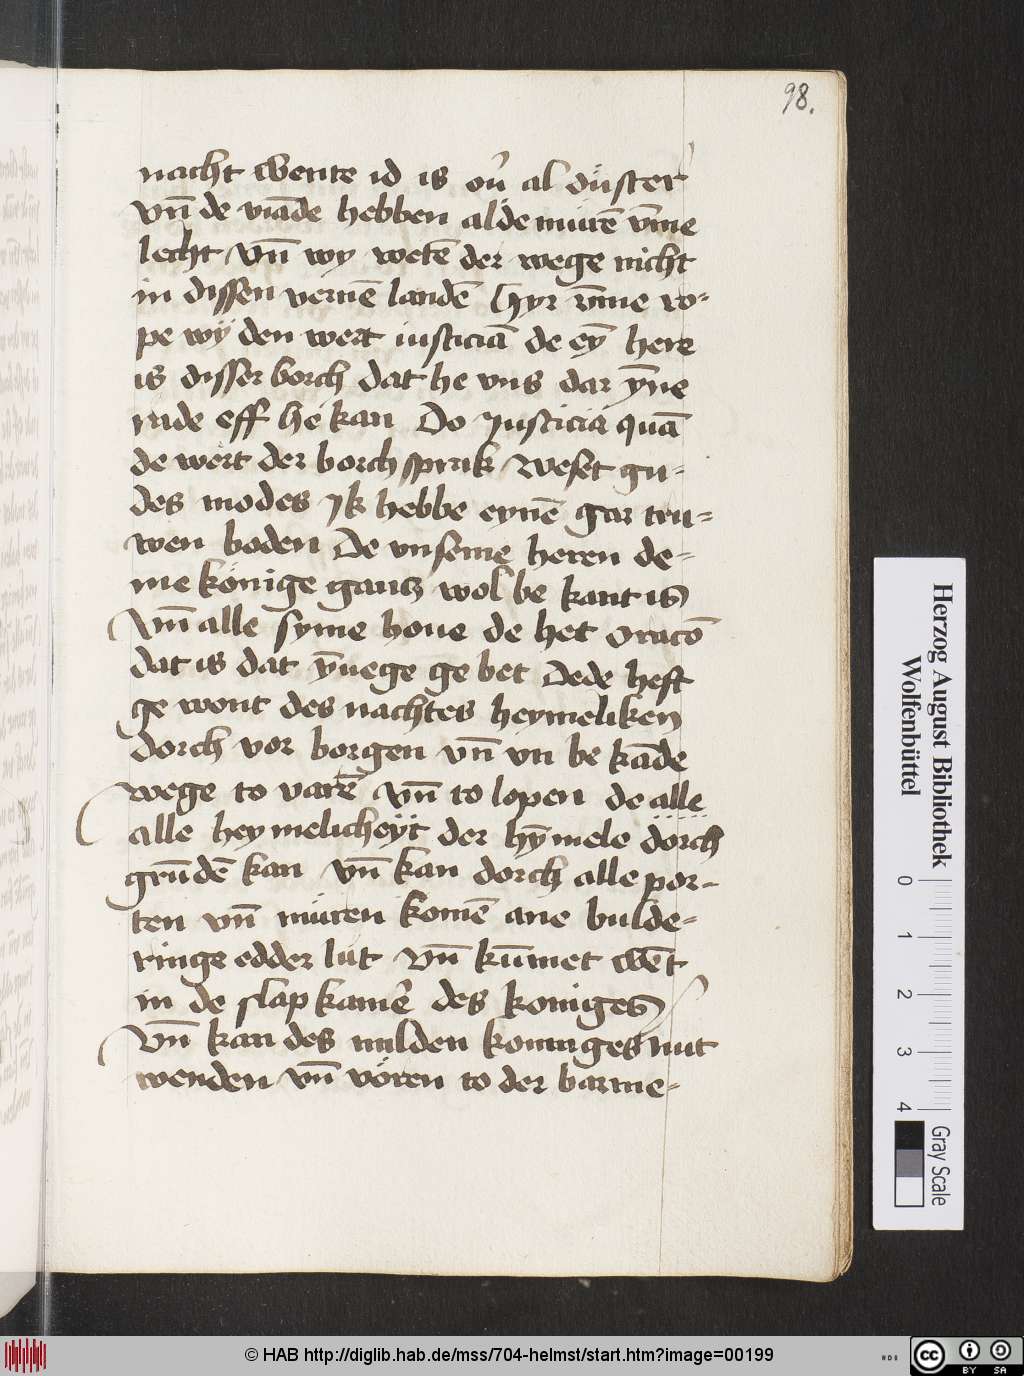 98.
nacht wente id is ou̇ al düster
vn̄ de viāde hebben al de murē v̄me
lecht vn̄ wy wetē der wege nicht
in dissen vernē landē Hyr v̄me ro-
pe wÿ den wert iusticiā de eȳ here
is disser borch dat he vns dar ȳne
rade eff he kan Do Justicia quā
de wert der borch sprak weset gu-
des modes Jk hebbe eynē gar tru-
wen boden De vnseme heren de-
me könige gantz wol be kant is
vn̄ alle syme houe de het oracō
dat is dat ȳnege ge bet Dede heft
ge wont des nachtes heymeliken
dorch vor borgen vn̄ vn be kāde
wege to varē vn̄ to lopen de alle
alle hey melicheÿt der hȳmele dorch
grūdē kan vn̄ kan dorch alle por-
ten vn̄ müren komē ane bulde-
ringe edder lut vn̄ kūmet wēt
in de slap kamer̄ des koniges
vn̄ kan des milden koninges mut
wenden vn̄ vören to der barme-
Herzog August Bibliothek
Wolfenbüttel
0 1 2 3 4
Gray Scale
© HAB http://diglib.hab.de/mss/704-helmst/start.htm?image=00199
cc BY SA